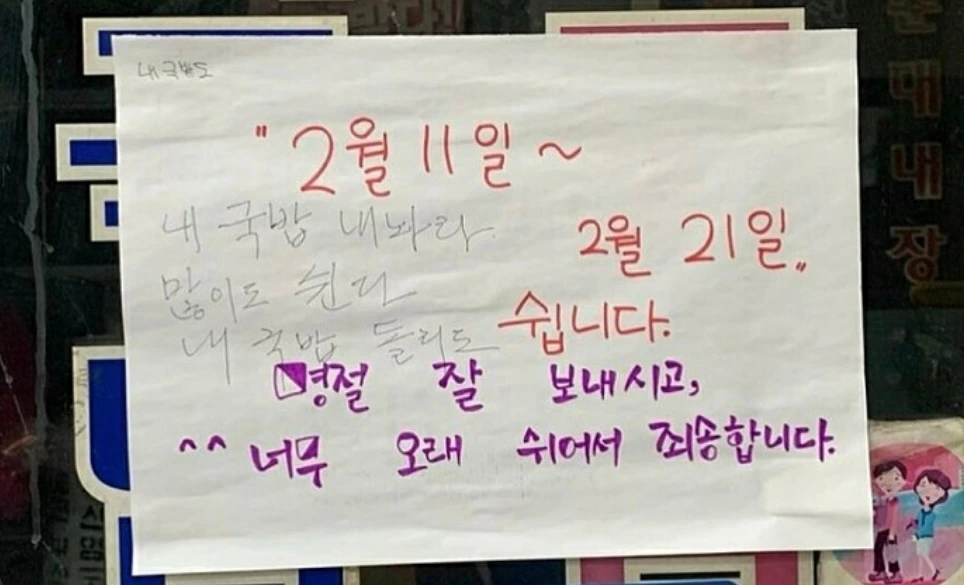 내 국밥도
"2월 11일 ~
2월 21일"
내 국밥 내놔라
많이도 쉰다
쉽니다.
내 국밥 돌리도
명절 잘 보내시고,
^^ 너무 오래 쉬어서 죄송합니다.
대
내
장